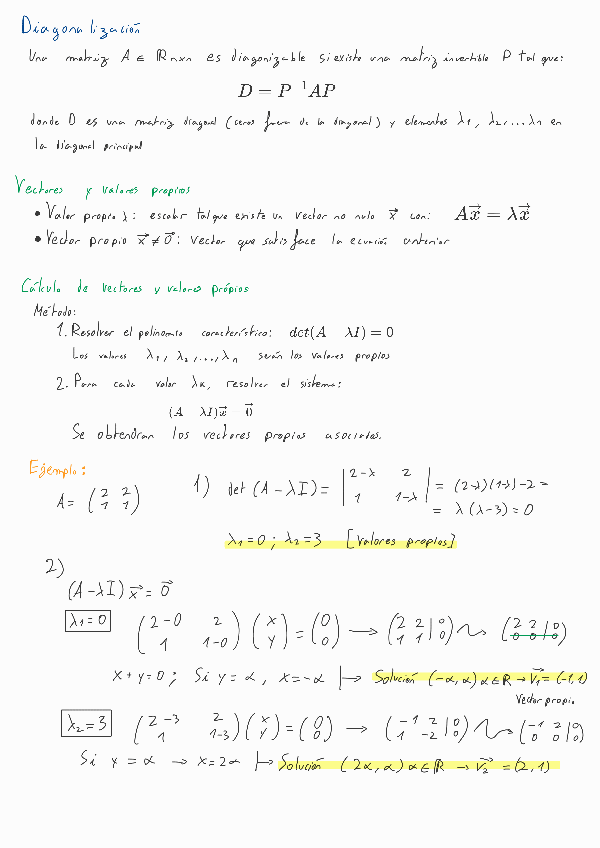 Diagonalización
Una matriz A ∈ ℝ nxn es diagonizable si existe una matriz invertible P tal que:
D = P ⁻¹AP
donde D es una matriz diagonal (ceros fuera de la diagonal) y elementos λ1, λ2,...λn en
la diagonal principal
Vectores y valores propios
• Valor propio λ: escalar tal que existe un vector no nulo x⃗ con: Ax⃗ = λx⃗
• Vector propio x⃗ ≠ 0⃗: vector que satisface la ecuación anterior
Cálculo de vectores y valores própios
Método:
1. Resolver el polinomio característico: det(A λI) = 0
Los valores λ1, λ2,...,λn serán los valores propios
2. Para cada valor λk, resolver el sistema:
(A λI)x⃗ 0⃗
Se obtendran los vectores propios asociados.
Ejemplo:
A = (2 2 / 1 1)
1) det (A-λI) = |2-λ 2 / 1 1-λ| = (2-λ)(1-λ)-2 =
= λ(λ-3) = 0
λ1=0; λ2=3 [Valores propios]
2)
(A-λI) x⃗ = 0⃗
λ1=0 (2-0 2 / 1 1-0) (x / y) = (0 / 0) → (2 2 | 0 / 1 1 | 0) ~ (2 2 | 0 / 0 0 | 0)
x+y=0; Si y=α, x=-α ↦ Solución (-α,α) α∈ℝ → v⃗1 = (-1,1)
Vector propio
λ2=3 (2-3 2 / 1 1-3) (x / y) = (0 / 0) → (-1 2 | 0 / 1 -2 | 0) ~ (-1 2 | 0 / 0 0 | 0)
Si y = α → x=2α ↦ Solución (2α, α) α∈ℝ → v⃗2 = (2,1)